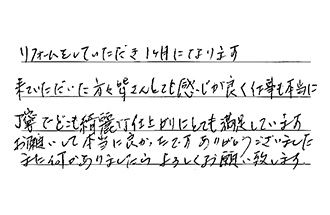 リフォームをしていただき1ヶ月になります
来ていただいた方々皆さんとても感じが良く仕事も本当に
丁寧でどこも綺麗な仕上りにとても満足しています
お願いして本当に良かったです ありがとうございました
また何かありましたらよろしくお願い致します